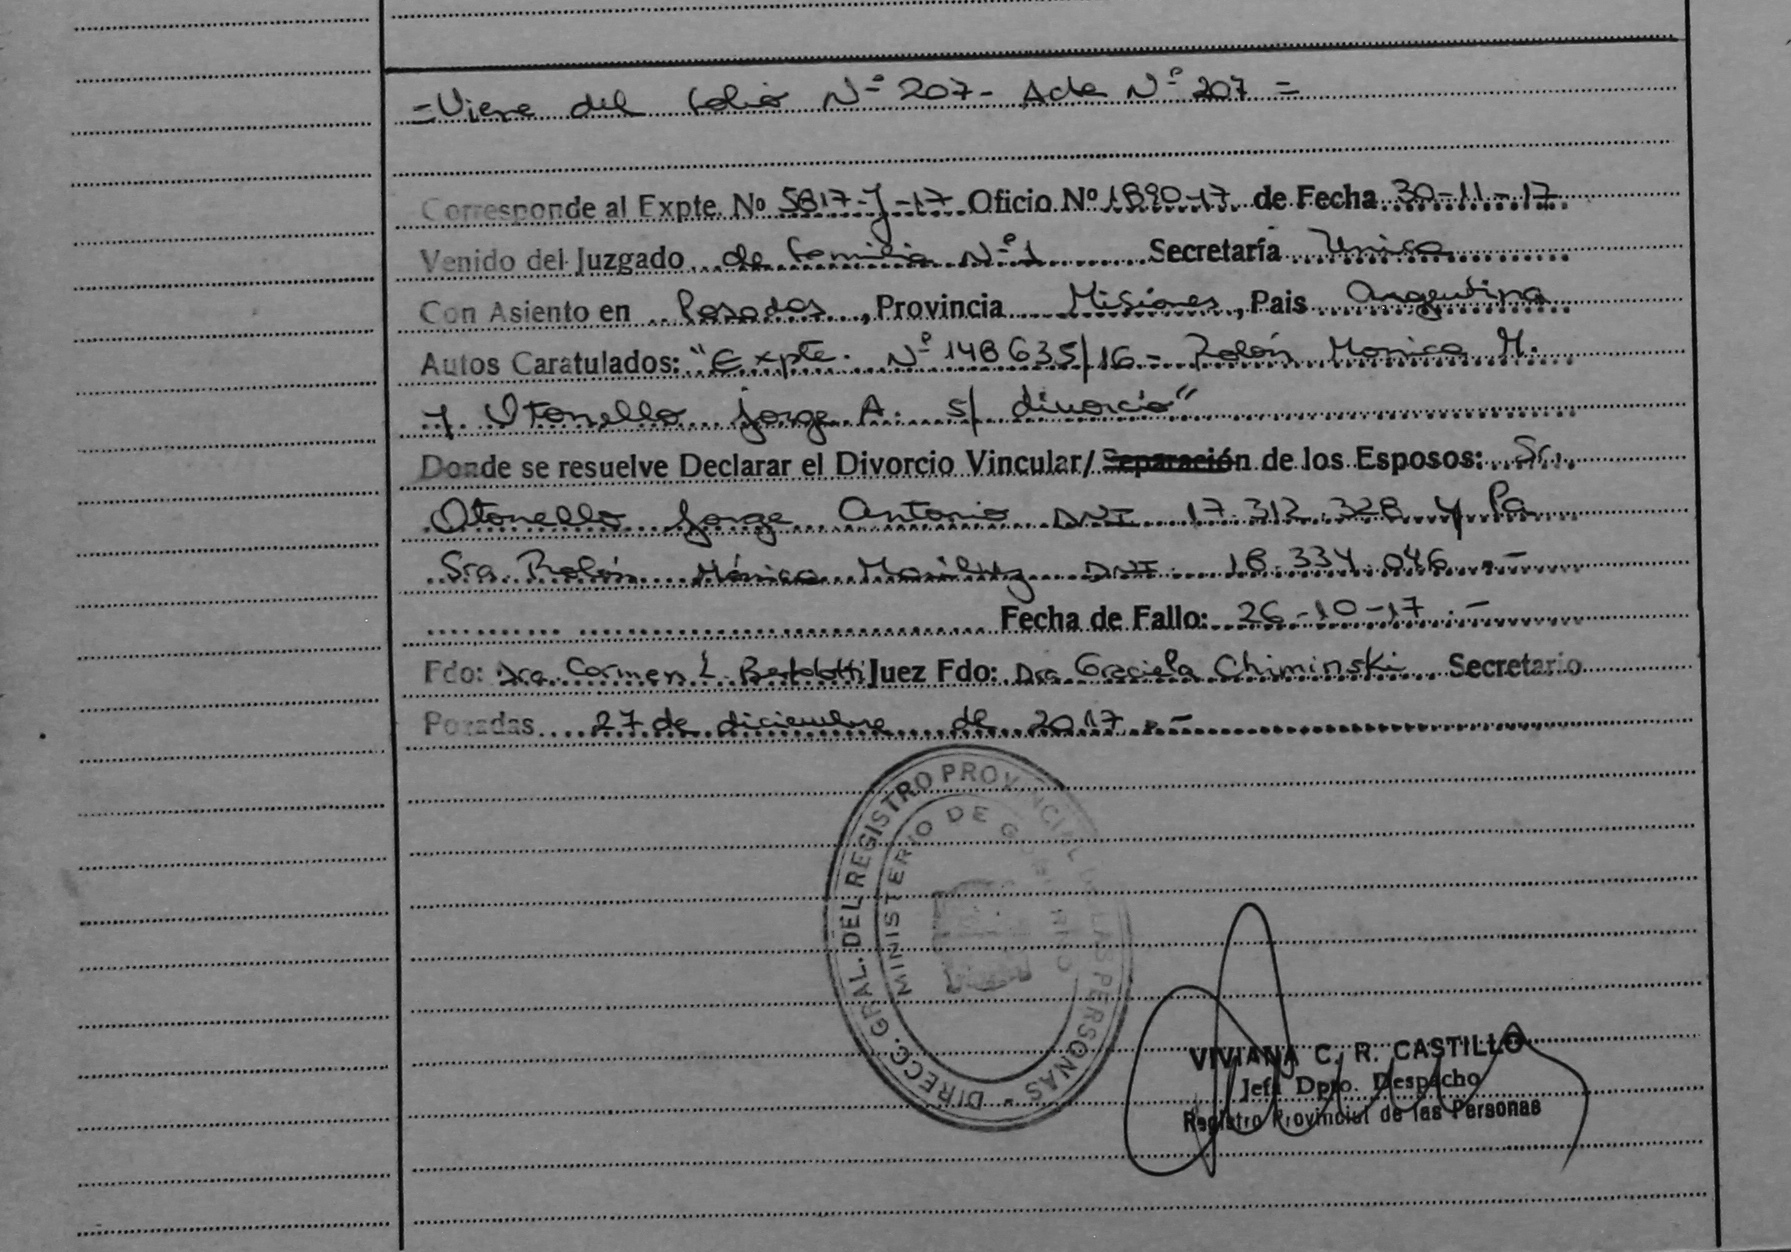 =Viene del folio Nº 207- Acta Nº 207=
Corresponde al Expte. Nº 5817-J-17 Oficio Nº 1890-17 de Fecha 30-11-17
Venido del Juzgado de familia Nº1 Secretaría Unica
Con Asiento en Posadas, Provincia Misiones, Pais Argentina
Autos Caratulados: "Expte. Nº 148635/16- Rolón Monica M.
y Otonello Jorge A. s/ divorcio"
Donde se resuelve Declarar el Divorcio Vincular/ Separación de los Esposos: Sr.
Otonello Jorge Antonio DNI 17.312.328 y la
Sra. Rolón Mónica Mariluz DNI 18.334.046.-
Fecha de Fallo: 26-10-17.-
Fdo: Dra. Carmen L. Bertolotti Juez Fdo: Dra Graciela Chiminski Secretario
Pozadas 27 de diciembre de 2017.-
DIRECC. GRAL. DEL REGISTRO PROVINCIAL DE LAS PERSONAS
MINISTERIO DE GOBIERNO
VIVIANA C. R. CASTILLO
Jefa Dpto. Despacho
Registro Provincial de las Personas